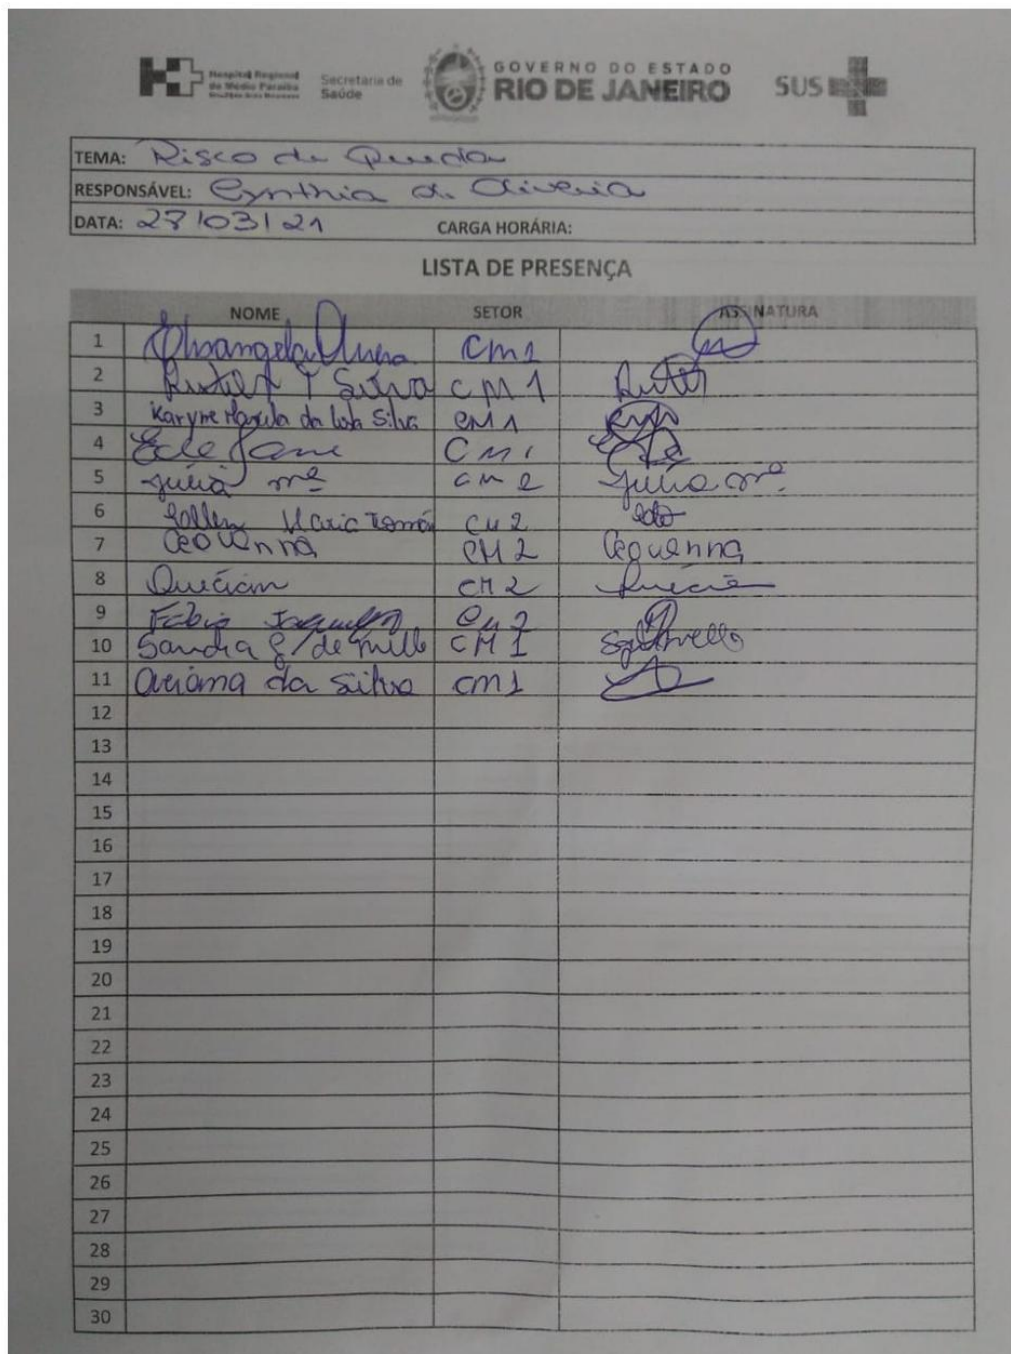 Hospital Regional
do Médio Paraíba
Secretaria de
Saúde
GOVERNO DO ESTADO
RIO DE JANEIRO
SUS
TEMA: Risco de Queda
RESPONSÁVEL: Cynthia de Oliveira
DATA: 27/03/21 CARGA HORÁRIA:
LISTA DE PRESENÇA
NOME SETOR ASSINATURA
1 CM1
2 Silva CM 1
3 Karyne da Silva CM1
4 Ede Jane CM1
5 Júlia Mª CM 2 Júlia Mª
6 Maria CM 2
7 Geovanna CM 2 Geovanna
8 CM 2
9 Fabio CM 2
10 Sandra de CM 1
11 da Silva CM1
12
13
14
15
16
17
18
19
20
21
22
23
24
25
26
27
28
29
30